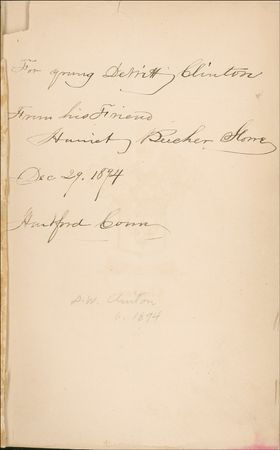 For young DeWitt Clinton
From his Friend
Harriet Beecher Stowe
Dec 29. 1894
Hartford Conn
D.W. Clinton
1894